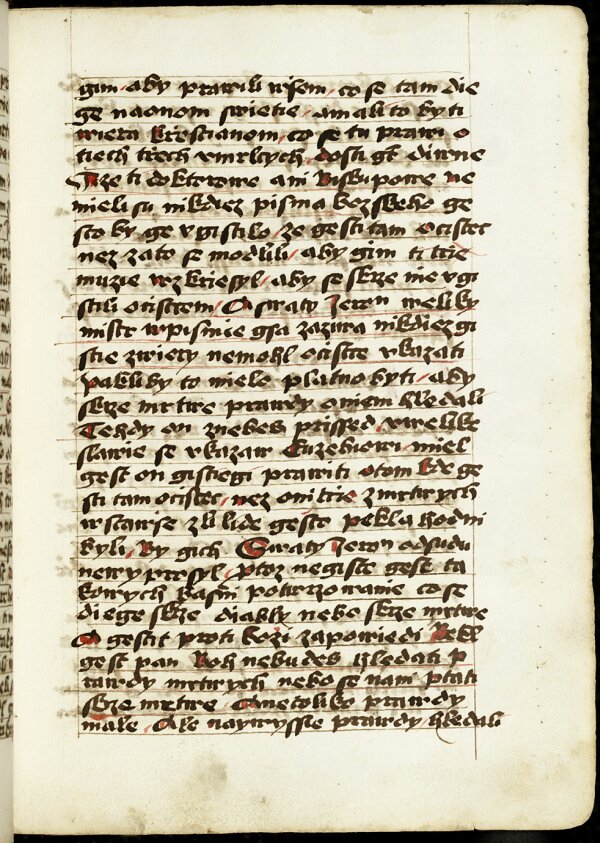 166
gim aby prawili wsem / co se tam die
ge naonom swietie / amalito byti
wiera krzestianom / co se tu prawi o
tiech trzech vmrlcych / dosti gt diwne
Uze ti doktorowe ani Biskupowe ne
mieli su nikdiez pisma bozskeho ge
sto by ge vgistilo / ze gesti tam ocistec
nez zato se modlili / aby gim ti trie
muzie wzkrziesyl / aby se skrze nie vgi
stili ocistcem / A swaty Jeron weliky
mistr wpismie gsa zazura nikdiez gi
stie zwiery nemohl ocistce vkazati
pakliby to mielo platno byti / aby
skrze mrtwe prawdy oniem hledali
Tehdy on znebes prissed vwelike
slawie se vkazaw Euzebiowi miel
gest on gistiegi prawiti otom kde ge
sti tam ocistec / nez oni trie zmrtwych
wstawse zli lide gesto pekla hodni
byli / by gich Swaty Jeron odsudu
newyprosyl / ptoz negiste gest ta
kowych basni potwrzowanie co se
diege skrze diably nebo skrze mrtwe
A gestit proti bozi zapowiedi Rekl
gest pan Boh nebudes hledati p
rawdy mrtwych nebo se nani ptati
skrze mrtwe A netoliko prawdy
male / Ale naywyssie prawdy hledali